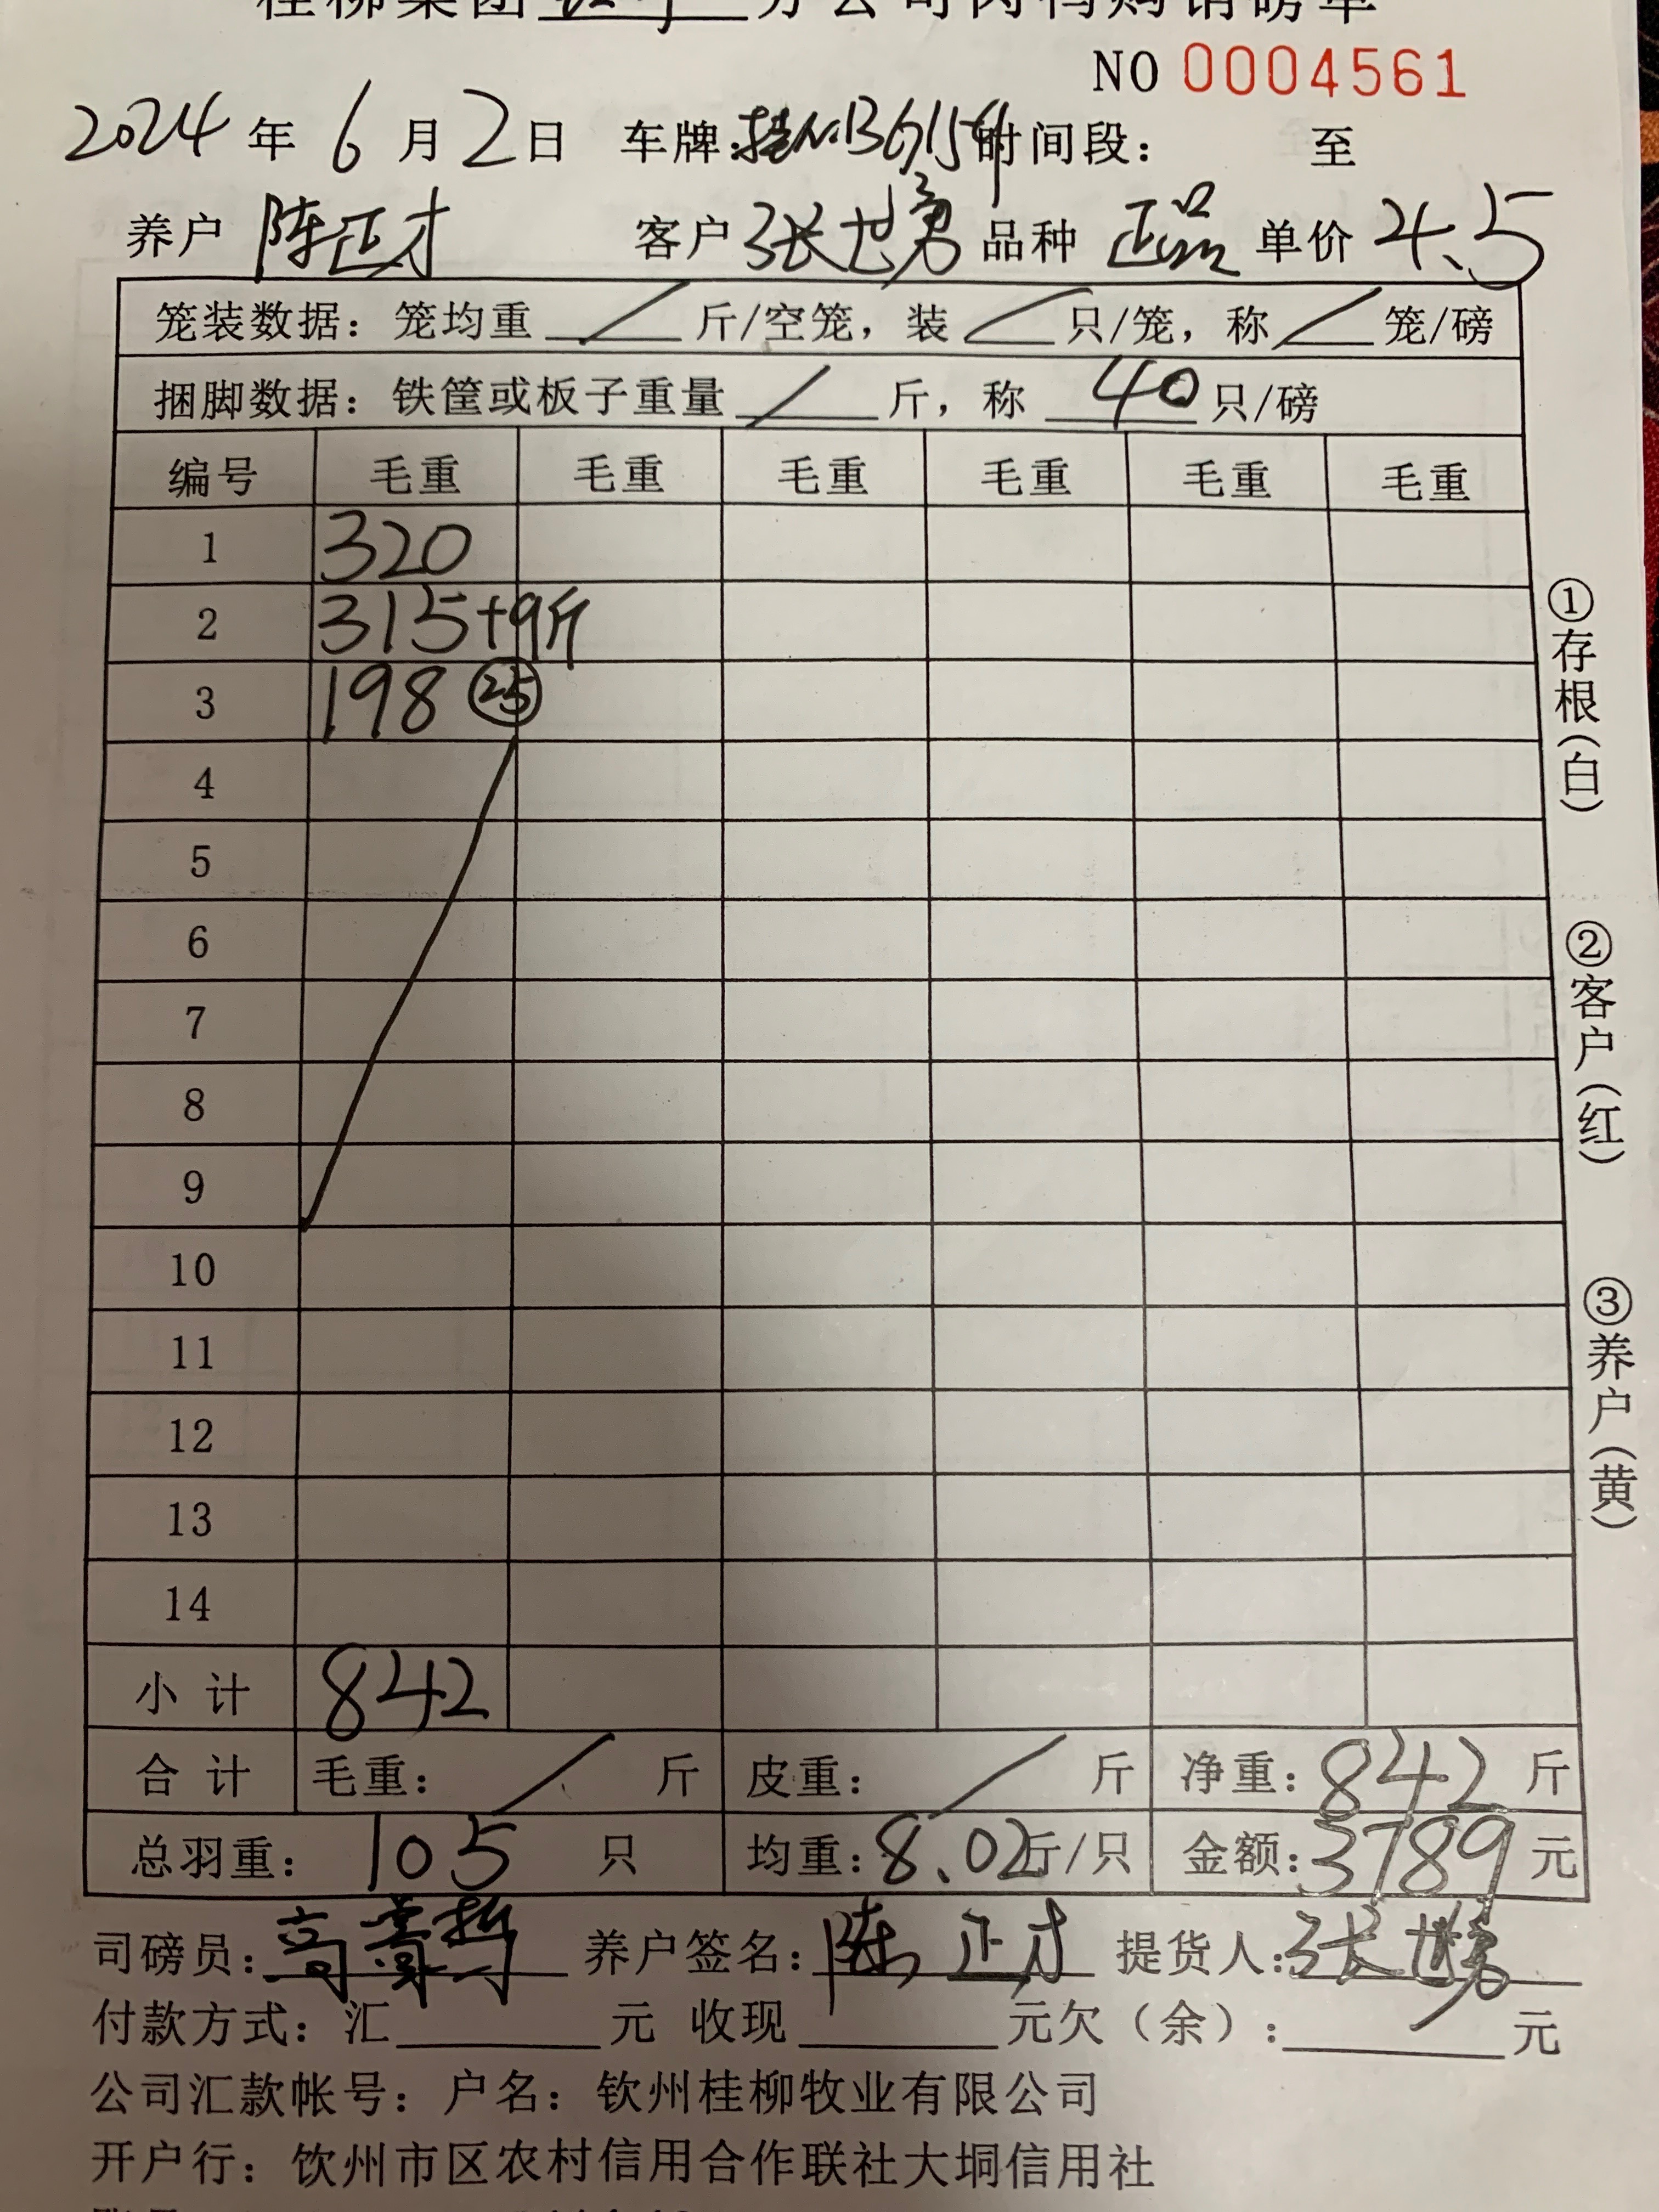 桂柳集团 分公司肉鸭购销磅单
NO 0004561
2024年6月2日 车牌: 时间段: 至
养户 陈正才 客户 张世勇 品种 正品 单价 4.5
笼装数据: 笼均重 / 斤/空笼, 装 / 只/笼, 称 / 笼/磅
捆脚数据: 铁筐或板子重量 / 斤, 称 40 只/磅
编号 毛重 毛重 毛重 毛重 毛重 毛重
1 320
2 315+9斤
3 198 ㉕
4
5
6
7
8
9
10
11
12
13
14
小计 842
合计 毛重: / 斤 皮重: / 斤 净重: 842 斤
总羽重: 105 只 均重: 8.02斤/只 金额: 3789 元
司磅员: 高 哲 养户签名: 陈正才 提货人: 张世勇
付款方式: 汇 元 收现 元欠(余): 元
公司汇款帐号: 户名: 钦州桂柳牧业有限公司
开户行: 饮州市区农村信用合作联社大垌信用社
①存根(白)
②客户(红)
③养户(黄)